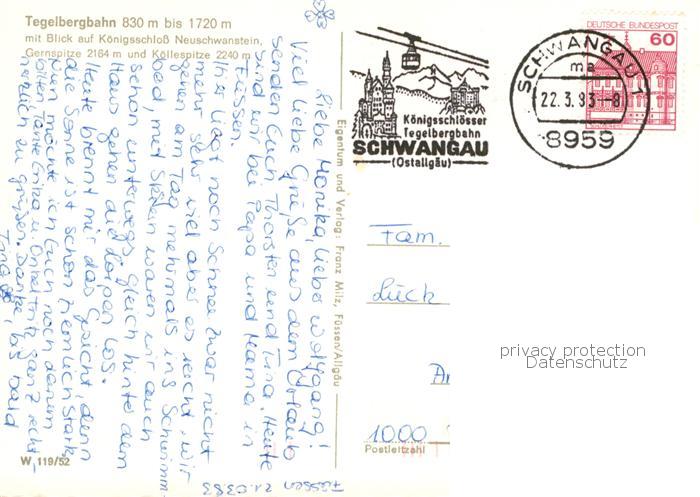 Tegelbergbahn 830 m bis 1720 m
mit Blick auf Königsschloß Neuschwanstein,
Gernspitze 2164 m und Köllespitze 2240 m
Füssen 21.03.83
Liebe Monika, liebe Wolfgang!
Viel liebe Grüße aus dem Urlaub
senden Euch Thorsten und Tina. Heute
sind wir bei Papa und Mama in
Füssen.
Hier liegt noch Schnee zwar nicht
mehr sehr viel aber es reicht, wir
gehen am Tag mehrmals ins Schwimm
bad, mit Skiern waren wir auch
schon unterwegs. Gleich hinter dem
Haus gehen die Loipen los.
Heute brennt mir das Gesicht, denn
die Sonne ist schon ziemlich stark.
Nun möchte ich Euch noch darum
bitten Tante u. Onkel Fritz ganz recht
herzlich zu grüßen. Danke, bis bald
Tina
W 119/52
Eigentum und Verlag: Franz Milz, Füssen/Allgäu
Königsschlösser
Tegelbergbahn
SCHWANGAU
(Ostallgäu)
SCHWANGAU 1
ma
22.3.83--8
8959
DEUTSCHE BUNDESPOST
60
Fam.
Lück
1000
Postleitzahl
privacy protection
Datenschutz